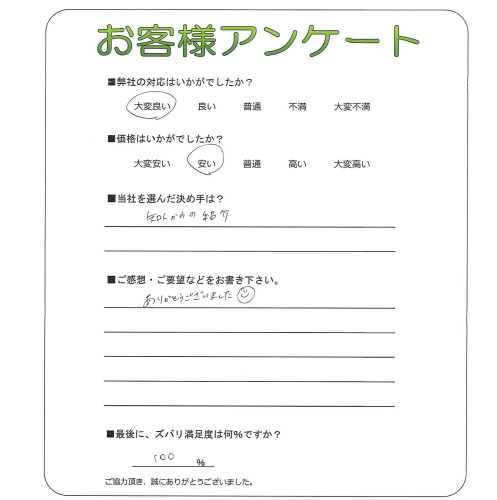 お客様アンケート
■弊社の対応はいかがでしたか？
大変良い 良い 普通 不満 大変不満
■価格はいかがでしたか？
大変安い 安い 普通 高い 大変高い
■当社を選んだ決め手は？
知人からの紹介
■ご感想・ご要望などをお書き下さい。
ありがとうございました
■最後に、ズバリ満足度は何％ですか？
100 ％
ご協力頂き、誠にありがとうございました。